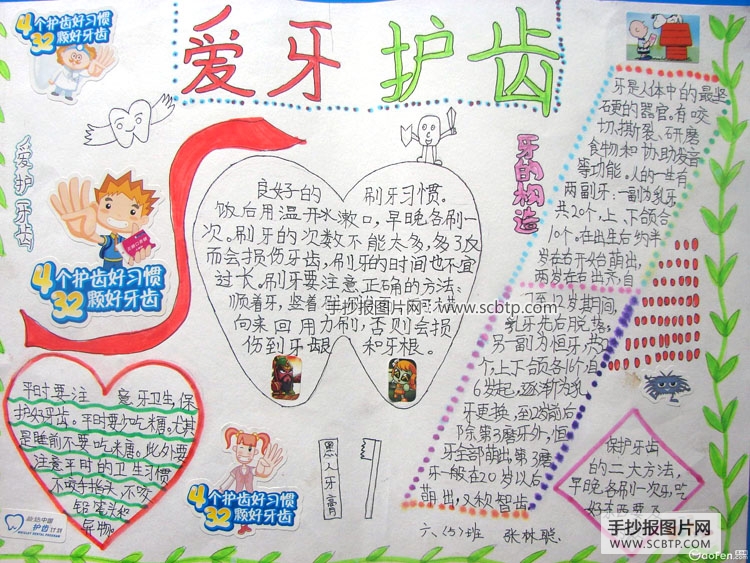 爱牙护齿
4个护齿好习惯
32颗好牙齿
爱护牙齿
4个护齿好习惯
32颗好牙齿
良好的 刷牙习惯。
饭后用温开水漱口，早晚各刷一
次。刷牙的次数不能太多，多了反
而会损伤牙齿，刷牙的时间也不宜
过长。刷牙要注意正确的方法：
顺着牙，竖着
向来回用力刷，否则会损
伤到牙龈 和牙根。
手抄报图片网-www.scbtp.com
牙的构造
牙是人体中的最坚
硬的器官。有咬
切、撕裂、研磨
食物和协助发音
等功能。人的一生有
两副牙：一副为乳牙
共20个，上、下颌合
10个。在出生后约半
岁在右开始萌出，
两岁在右出齐，自
6至12岁其期间，
乳牙先后脱落，
另一副为恒牙，共32
个，上、下颌各16个，自
6岁起，逐渐为乳
牙更换，至12岁前后
除第3磨牙外，恒
牙全部萌出，第3磨
牙一般在20岁以后
萌出，又称智齿
平时要注 意牙卫生，保
护好牙齿。平时要少吃糖。尤其
是睡前不要吃糖。此外要
注意平时的卫生习惯
不咬手指头，不咬
铅笔和
异物。
4个护齿好习惯
32颗好牙齿
黑人牙膏
保护牙齿
的二大方法，
早晚各刷一次牙，吃
好东西要
六、(5)班 张林聪
护齿计划
BRIGHT DENTAL PROGRAM
手抄报图片网
WWW.SCBTP.COM